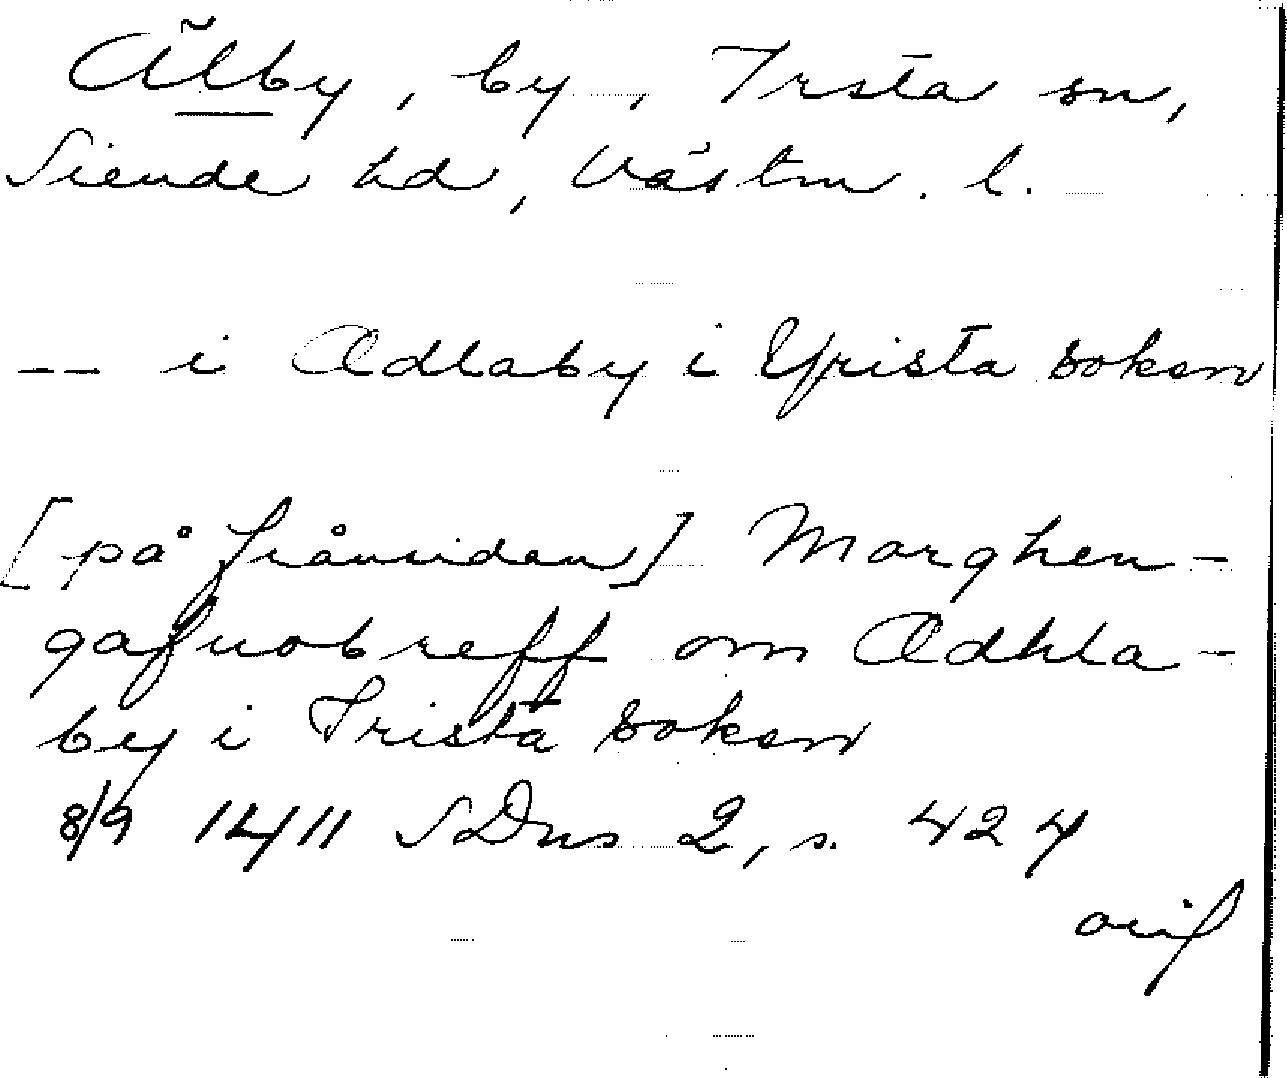 Älby, by, Irsta sn,
Siende hd, Västm. l.
-- i Ædlaby i Yrista soksn
[på frånsidan] Marghen-
gafuobreff om Ædhla-
by i Irista soksn
8/9 1411 SDns 2, s. 424